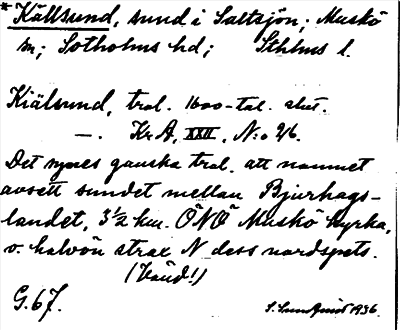 *Källsund, sund i Saltsjön; Muskö
sn; Sotholms hd; Sthlms l.
Kiälsund, trol. 1600-tal. slut.
—. Kr A, XXII, N:o 26.
Det synes ganska trol. att namnet
avsett sundet mellan Bjurhags-
landet, 3½ km. ÖNÖ Muskö kyrka,
o. halvön strax N dess nordspets.
(Vänd!)
G. 67. S. Sundquist 1936.